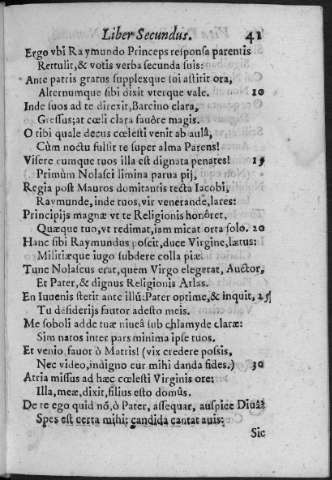 Liber Secundus. 41
Ergo vbi Raymundo Princeps responsa parentis
Rettulit, & votis verba secunda suis:
Ante patris gratus supplexque loi astitit ora,
Alternumque sibi dixit vterque vale. 10
Inde suos ad te direxit, Barcino clara,
Gressus; at cœli clara fauôre magis.
O tibi quale decus cœlesti venit ab aulâ,
Cùm noctu fulsit te super alma Parens!
Visere cumque tuos illa est dignata penates! 15
Primùm Nolasci limina parua pij,
Regia post Mauros domitantis tecta Iacobi,
Raymunde, inde tuos, vir venerande, lares:
Principijs magnæ vt te Religionis honôret,
Quæque tuo, vt redimat, iam micat orta solo. 20
Hanc sibi Raymundus poscit, duce Virgine, lætus:
Militiæque iugo subdere colla piæ.
Tunc Nolascus erat, quem Virgo elegerat, Auctor,
Et Pater, & dignus Religionis Atlas.
En Iuuenis stetit ante illũ: Pater optime, & inquit, 25
Tu desiderijs fautor adesto meis.
Me soboli adde tuæ niueâ sub chlamyde claræ:
Sim natos inter pars minima ipse tuos.
Et venio fauor ô Matris! (vix credere possis,
Nec video, indigno cur mihi danda fides.) 30
Atria missus ad hæc cœlesti Virginis ore:
Illa, meæ, dixit, filius esto domûs.
De te ego quid nõ, ô Pater, assequar, auspice Diuâ?
Spes est certa mihi; candida cantat auis:
Sic